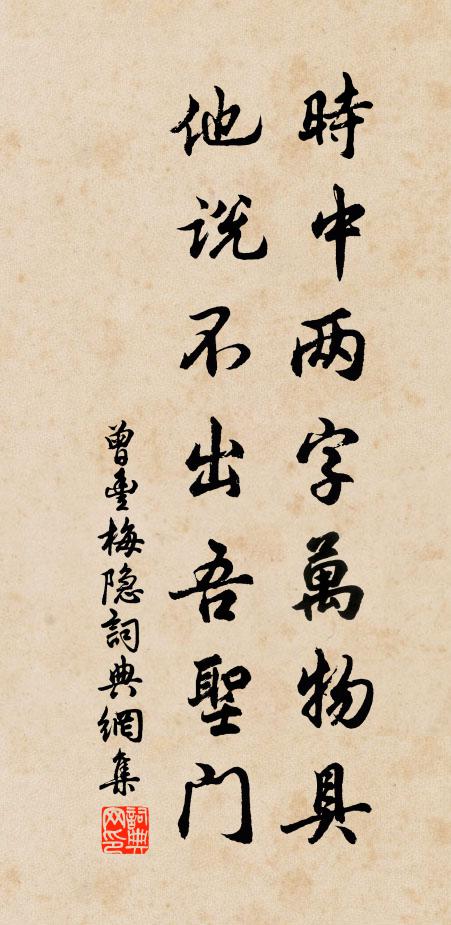 時中两字萬物具
他説不出吾聖门
曾豐梅隐詞典網集
詞典网印